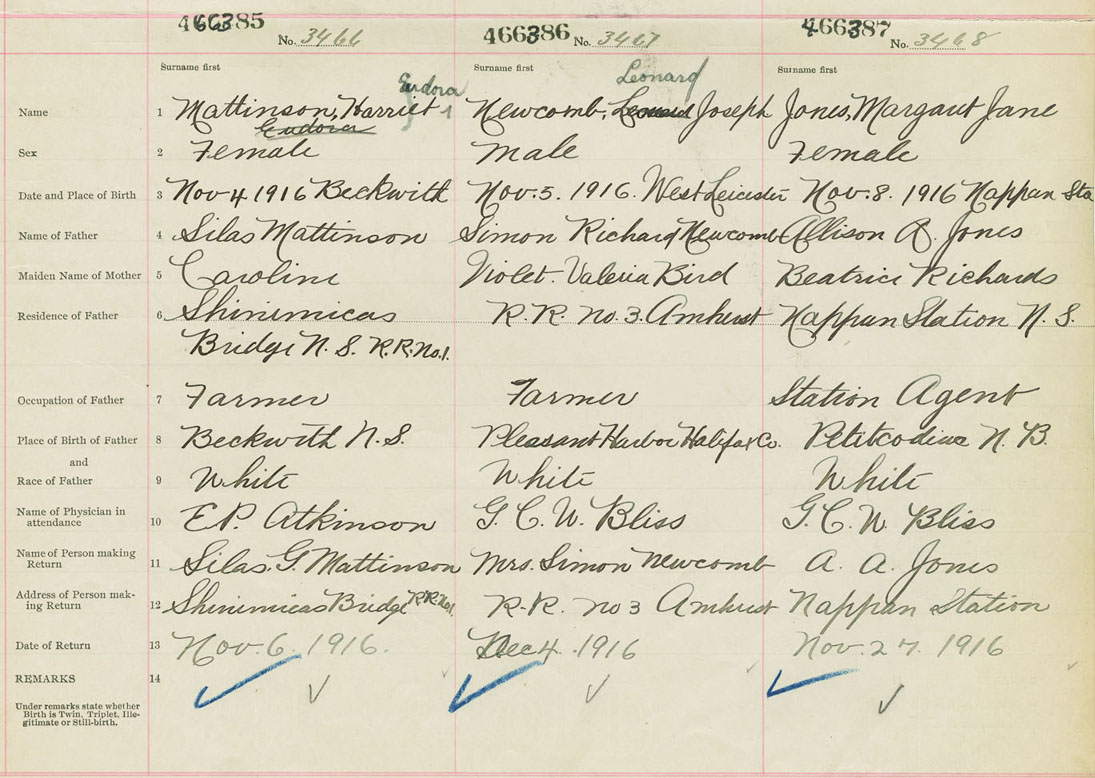 466385 No. 3466 466386 No. 3467 466387 No. 3468
Surname first Surname first Surname first
Eudora Leonard
Name 1 Mattinson, Harriet Newcomb, Joseph Jones, Margaret Jane
Eudora
Sex 2 Female Male Female
Date and Place of Birth 3 Nov 4 1916 Beckwith Nov. 5. 1916. West Leicester Nov. 8. 1916 Nappan Sta
Name of Father 4 Silas Mattinson Simon Richard Newcomb Allison A. Jones
Maiden Name of Mother 5 Caroline Violet Valeria Bird Beatrice Richards
Residence of Father 6 Shinimicas R.R. no 3 Amherst Nappan Station N.S.
Bridge N.S. R.R. No. 1.
Occupation of Father 7 Farmer Farmer Station Agent
Place of Birth of Father 8 Beckwith N.S. Pleasant Harbor Halifax Co. Petitcodiac N.B.
and
Race of Father 9 White White White
Name of Physician in
attendance 10 E.P. Atkinson G.C.W. Bliss G.C.W Bliss
Name of Person making
Return 11 Silas. G. Mattinson Mrs. Simon Newcomb A. A. Jones
Address of Person mak-
ing Return 12 Shinimicas Bridge R.R. No 1 R.R. no 3 Amherst Nappan Station
Date of Return 13 Nov. 6. 1916. Dec 4. 1916 Nov. 27. 1916
REMARKS 14
Under remarks state whether
Birth is Twin, Triplet, Ille-
gitimate or Still-birth.